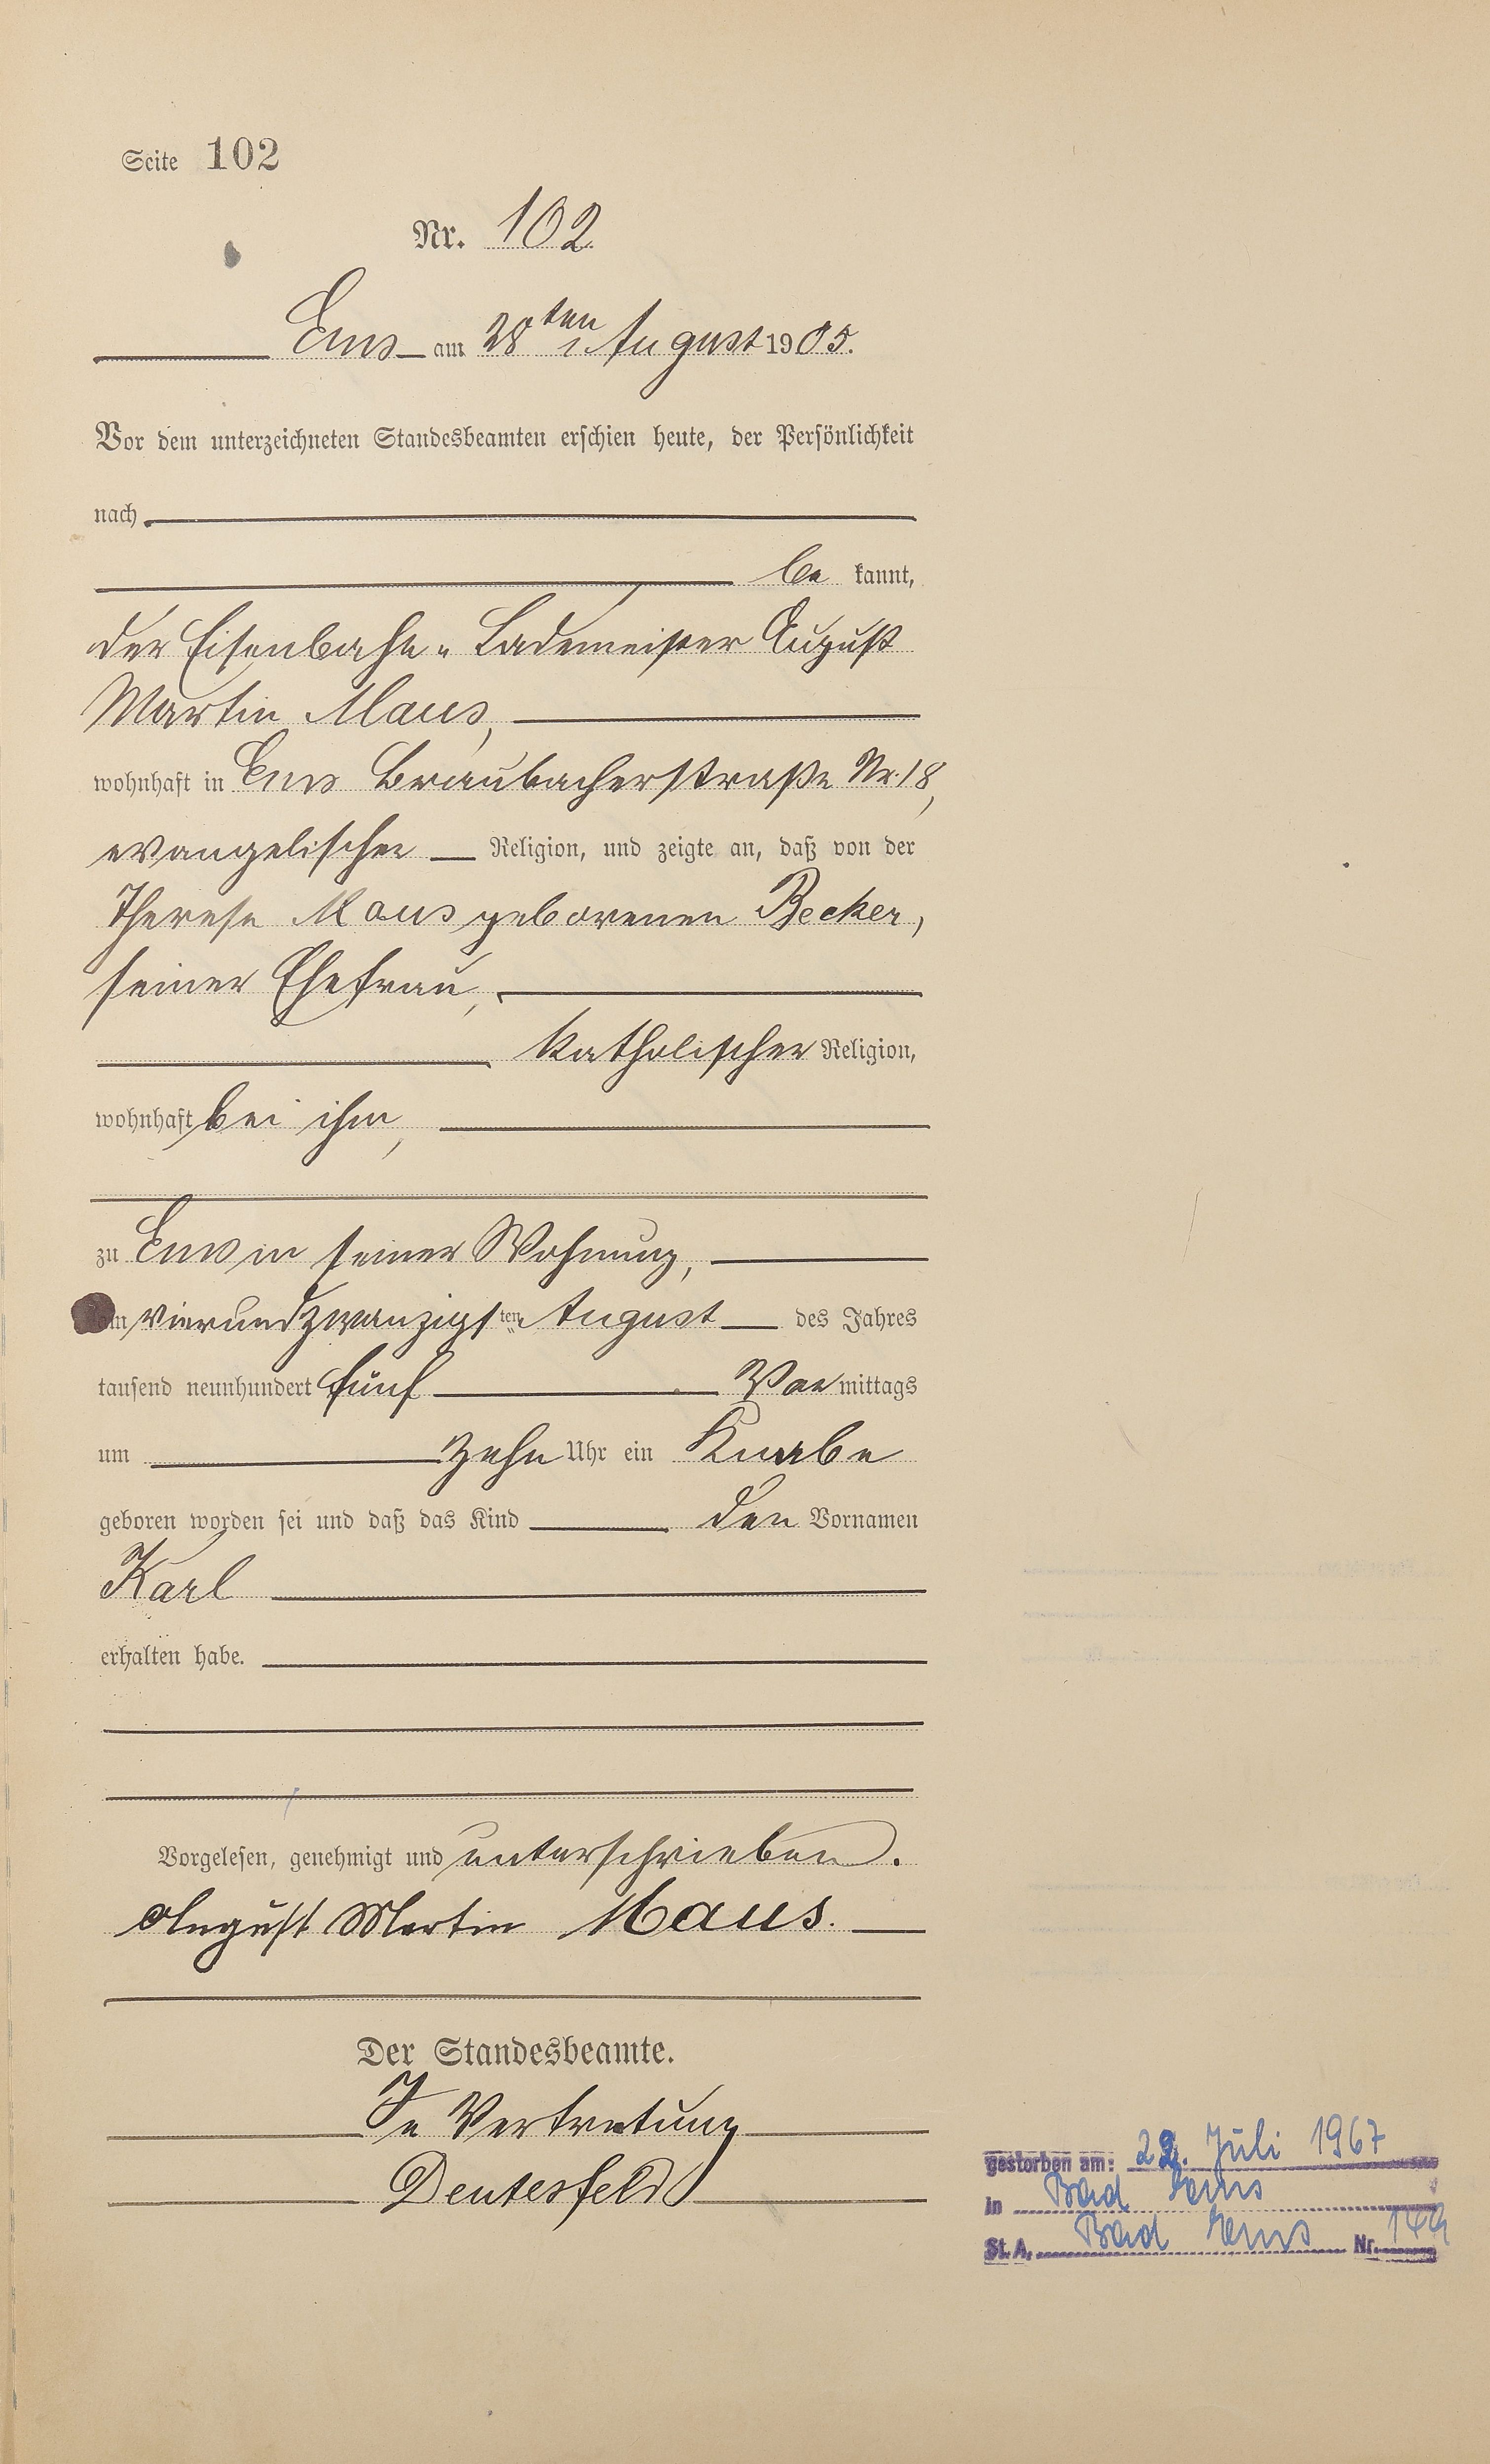 Seite 102
Nr. 102.
Ems am 28ten August 1905.
Vor dem unterzeichneten Standesbeamten erschien heute, der Persönlichkeit
nach
be kannt,
der Eisenbahn-Lademeister August
Martin Maus,
wohnhaft in Ems Braubacherstraße Nr. 18,
evangelischer Religion, und zeigte an, daß von der
Therese Maus geborenen Becker,
seiner Ehefrau,
katholischer Religion,
wohnhaft bei ihm,
zu Ems in seiner Wohnung,
am vierundzwanzigsten August des Jahres
tausend neunhundert fünf Vor mittags
um zehn Uhr ein Knabe
geboren worden sei und daß das Kind den Vornamen
Karl
erhalten habe.
Vorgelesen, genehmigt und unterschrieben.
August Martin Maus.
Der Standesbeamte.
In Vertretung
Deutesfeld
gestorben am: 22. Juli 1967
in Bad Ems
St. A. Bad Ems Nr.